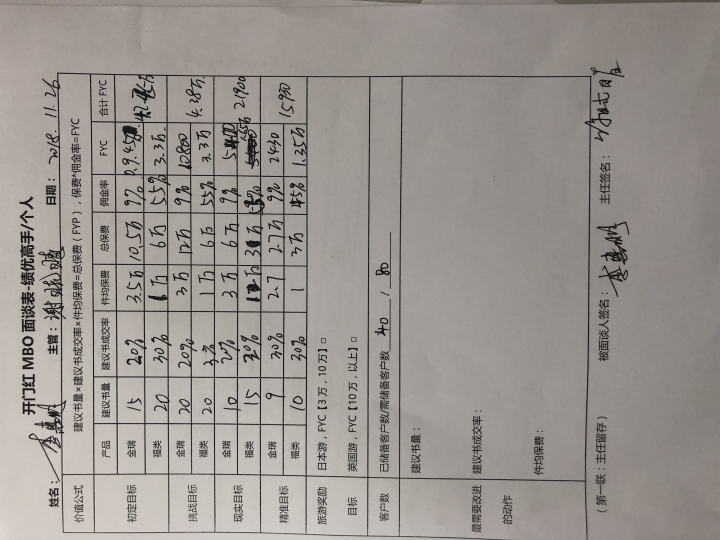 开门红 MBO 面谈表-绩优高手/个人
姓名： 主管： 日期： 2018. 11. 26
价值公式 建议书量×建议书成交率×件均保费=总保费（FYP），保费*佣金率=FYC
产品 建议书量 建议书成交率 件均保费 总保费 佣金率 FYC 合计 FYC
初定目标 金瑞 15 20% 3.5万 10.5万 9%
福类 20 30% 1万 6万 55% 3.3万
挑战目标 金瑞 20 20% 3万 12万 9% 10800 4.38万
福类 20 1万 6万 55% 3.3万
现实目标 金瑞 10 20% 3万 6万 9% 21900
福类 15 20%
精准目标 金瑞 9 30% 2.7 2.7万 9% 2430 15930
福类 10 30% 1 3万 45% 1.35万
旅游奖励 日本游，FYC【3 万，10 万】□
目标 英国游，FYC【10 万，以上】□
客户数 已储备客户数/需储备客户数 40 / 80
建议书量：
最需要改进 建议书成交率：
的动作
件均保费：
（第一联：主任留存） 被面谈人签名： 主任签名：